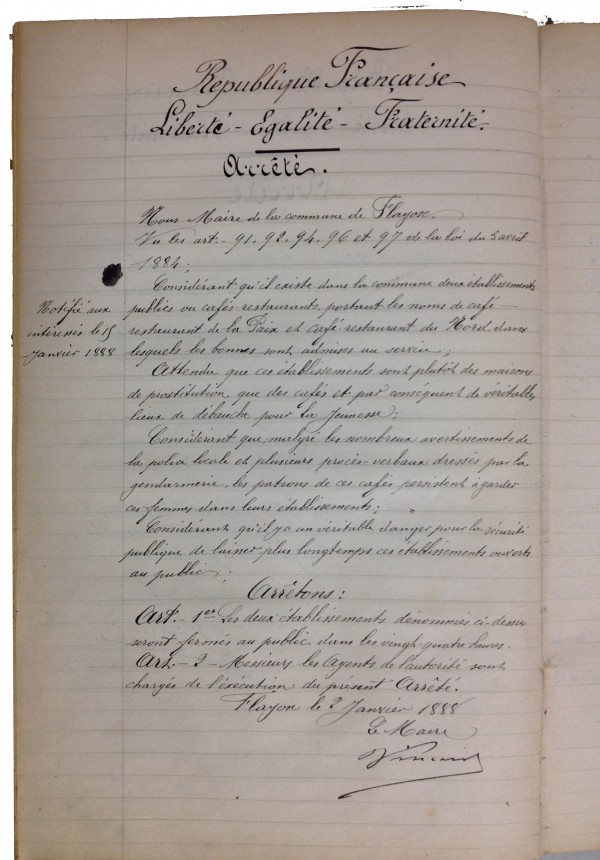 Republique Française
Liberté - Egalité - Fraternité.
Arrêté.
Nous Maire de la commune de Flayosc.
Vu les art. 91. 92. 94. 96 et 97 de la loi du 5 avril
1884;
Considérant qu'il existe dans la commune deux établissements
publics ou cafés restaurants, portant les noms de café
restaurant de la Paix et café restaurant du Nord, dans
lesquels les bonnes sont admises au service;
Notifié aux
intéressés le 15
Janvier 1888
Attendu que ces établissements sont plutôt des maisons
de prostitution que des cafés et par conséquent de véritables
lieux de débauche pour la Jeunesse;
Considérant que malgré les nombreux avertissements de
la police locale et plusieurs procès-verbaux dressés par la
gendarmerie, les patrons de ces cafés persistent à garder
ces femmes dans leurs établissements;
Considérant qu'il y a un véritable danger pour la sécurité
publique de laisser plus longtemps ces établissements ouverts
au public;
Arrêtons:
Art. - 1er Les deux établissements dénommés ci-dessus
seront fermés au public dans les vingt-quatre heures.
Art. - 2 - Messieurs les Agents de l'autorité sont
chargés de l'exécution du présent Arrêté.
Flayosc le 9 Janvier 1888
Le Maire